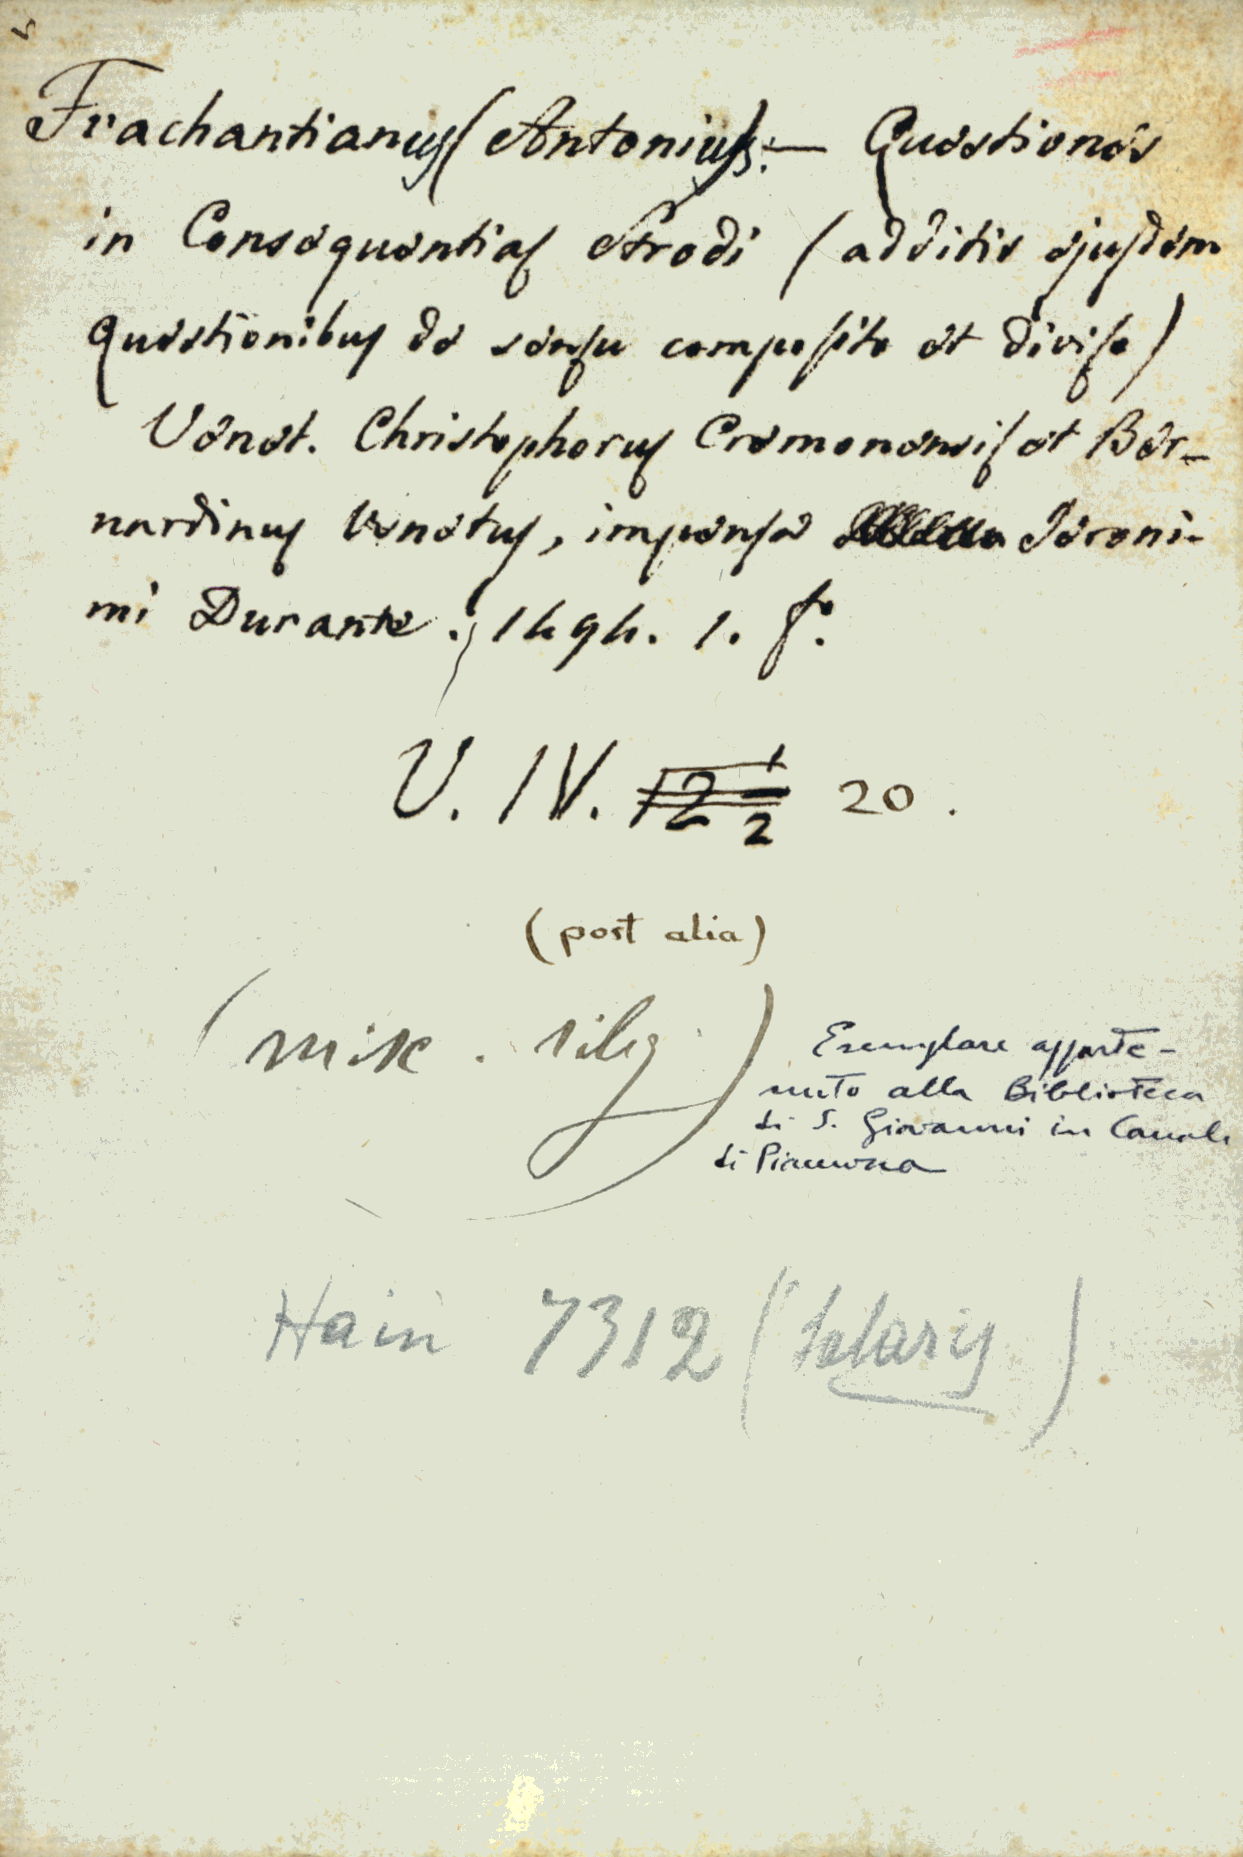 Frachantianus (Antonius). — Questiones
in Consequentias Strodi (additis ejusdem
questionibus de sensu composito et diviso)
Venet. Christophorus Cremonensis et Ber-
nardinus Venetus, impensa Jeroni-
mi Durante. 1494. 1. f.º
V. IV. 12 1/2 20.
(post alia)
(misc.
Esemplare apparte-
nuto alla Biblioteca
di S. Giovanni in Canale
di Piacenza
Hain 7312 (